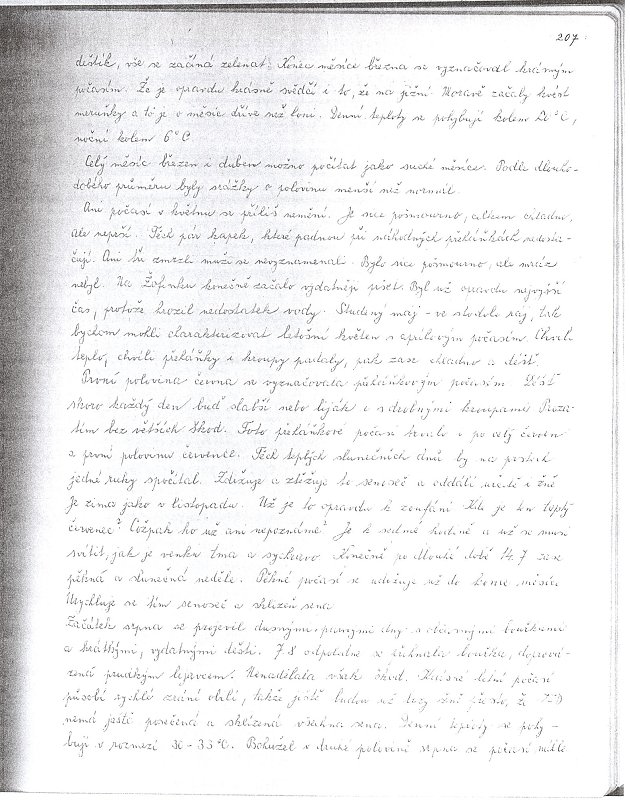 207
deštík, vše se začíná zelenat. Konec měsíce března se vyznačoval krásným
počasím. Že je opravdu krásně svědčí i to, že na jižní Moravě začaly kvést
meruňky a to je o měsíc dříve než loni. Denní teploty se pohybují kolem 20°C,
noční kolem 6°C
Celý měsíc březen i duben možno počítat jako suché měsíce. Podle dlouho-
dobého průměru byly srážky o polovinu menší než normál.
Ani počasí v květnu se příliš nemění. Je sice pošmourno, celkem chladno,
ale neprší. Těch pár kapek, které padnou při náhodných přeháňkách nedosta-
čují. Ani tři zmrzlí muži se nevyznamenali. Bylo sice pošmourno, ale mráz
nebyl. Na Žofinku konečně začalo vydatněji pršet. Byl už opravdu nejvyšší
čas, protože hrozil nedostatek vody. Studený máj - ve stodole ráj, tak
bychom mohli charakterizovat letošní květen s aprílovým počasím. Chvíli
teplo, chvíli přeháňky i kroupy padaly, pak zase chladno a déšť.
První polovina června se vyznačovala přeháňkovým počasím. Déšť
skoro každý den buď slabší nebo liják i s drobnými kroupami. Proza-
tím bez větších škod. Toto přeháňkové počasí trvalo i po celý červen
a první polovinu července. Těch teplých slunečních dnů by na prstech
jedné ruky spočítal. Zdržuje a ztěžuje to senoseč a oddálí určitě i žně
Je zima jako v listopadu. Už je to opravdu k zoufání. Kde je ten teplý
červenec? Cožpak ho už ani nepoznáme? Je k sedmé hodině a už se musí
svítit, jak je venku tma a sychravo. Konečně po dlouhé době 14.7 zase
pěkná a slunečná neděle. Pěkné počasí se udržuje už do konce měsíce.
Urychluje se tím senoseč a sklizeň sena
Začátek srpna se projevil dusnými, parnými dny s občasnými bouřkami
a krátkými, vydatnými dešti. 7.8 odpoledne se přihnala bouřka, doprová-
zená prudkým lijavcem. Nenadělala však škod. Krásné letní počasí
působí rychlé zrání obilí, takže ještě budou už brzy žně přesto, že JZD
nemá ještě posečená a sklizená všechna sena. Denní teploty se pohy-
bují v rozmezí 30 - 33°C. Bohužel v druhé polovině srpna se počasí náhle